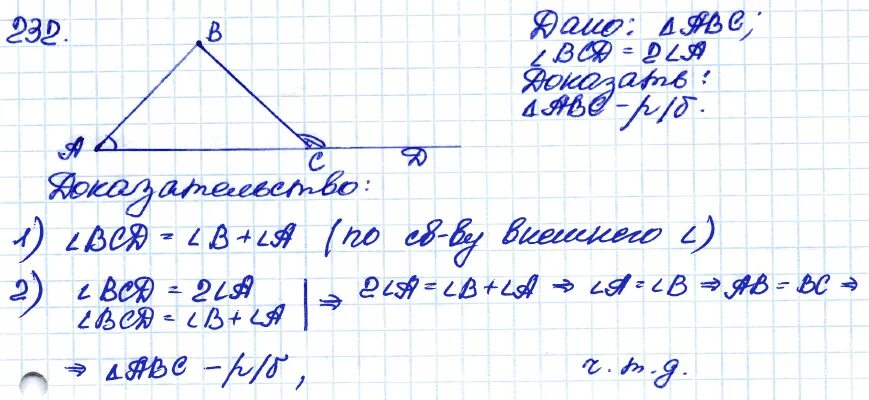 232.
B
A
C
D
Дано: △ABC;
∠BCD = 2∠A
Доказать:
△ABC – р/б.
Доказательство:
1) ∠BCD = ∠B + ∠A (по св-ву внешнего ∠)
2) ∠BCD = 2∠A
∠BCD = ∠B + ∠A | ⇒ 2∠A = ∠B + ∠A ⇒ ∠A = ∠B ⇒ AB = BC ⇒
⇒ △ABC – р/б, ч.т.д.